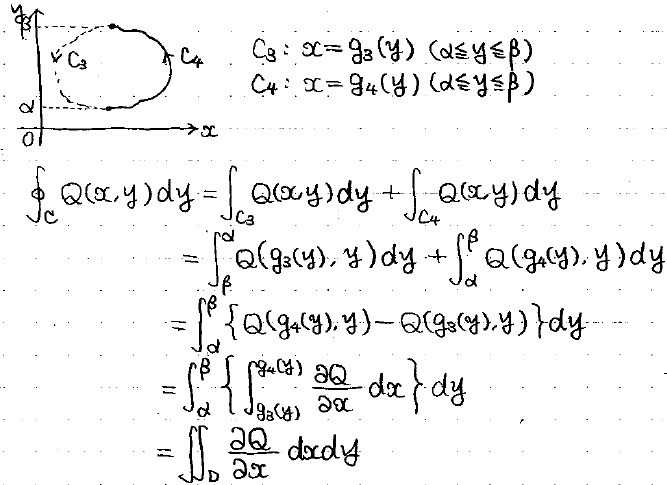 y
β
C₃
C₄
α
O
x
C₃: x = g₃(y) (α≦y≦β)
C₄: x = g₄(y) (α≦y≦β)
∮_C Q(x,y)dy = ∫_{C₃} Q(x,y)dy + ∫_{C₄} Q(x,y)dy
= ∫_β^α Q(g₃(y), y)dy + ∫_α^β Q(g₄(y), y)dy
= ∫_α^β {Q(g₄(y), y) − Q(g₃(y), y)}dy
= ∫_α^β {∫_{g₃(y)}^{g₄(y)} ∂Q/∂x dx} dy
= ∬_D ∂Q/∂x dxdy